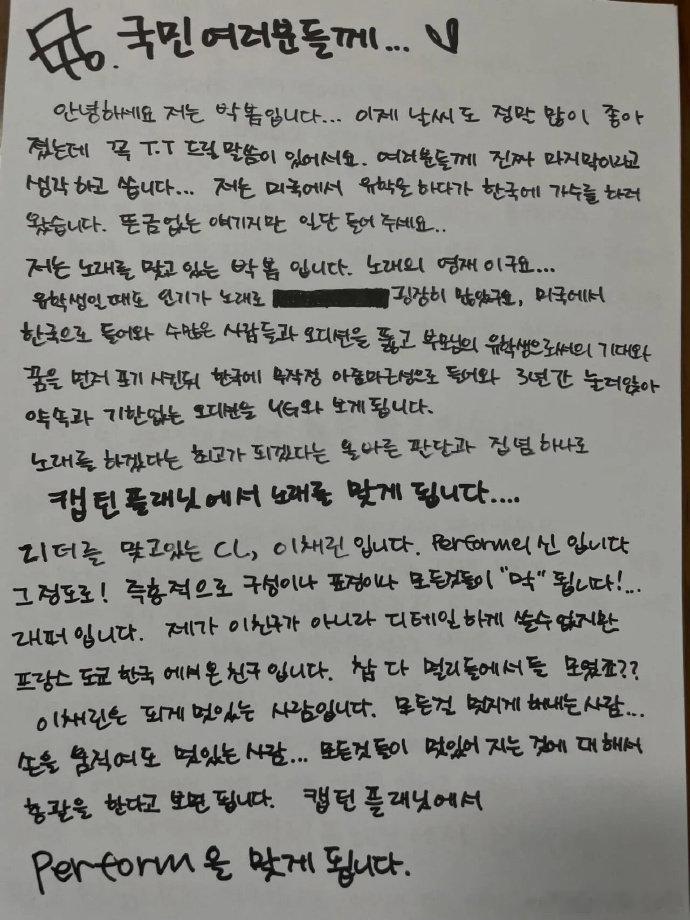 To. 국민 여러분들께...
안녕하세요 저는 박봄입니다... 이제 날씨도 정말 많이 좋아
졌는데 꼭 T.T 드릴 말씀이 있어서요. 여러분들께 진짜 마지막이라고
생각하고 씁니다... 저는 미국에서 유학을 하다가 한국에 가수를 하러
왔습니다. 뜬금없는 얘기지만 일단 들어 주세요..
저는 노래를 맞고 있는 박봄 입니다. 노래의 영재 이구요...
유학생일때도 인기가 노래로 굉장히 많았구요, 미국에서
한국으로 들어와 수많은 사람들과 오디션을 뚫고 부모님의 유학생으로써의 기대와
꿈을 먼저 포기 시킨뒤 한국에 무작정 아줌마근성으로 들어와 3년간 눌러앉아
약속과 기한없는 오디션을 YG와 보게 됩니다.
노래를 하겠다는 최고가 되겠다는 올바른 판단과 집념 하나로
캡틴 플래닛에서 노래를 맞게 됩니다....
리더를 맞고있는 CL, 이채린 입니다. Perform의 신 입니다
그정도로! 즉흥적으로 구성이나 표정이나 모든것들이 "막" 됩니다!...
래퍼입니다. 제가 이친구가 아니라 디테일하게 쓸수 없지만
프랑스 도쿄 한국 에서 온 친구입니다. 참 다 멀리들에서들 모였죠??
이채린은 되게 멋있는 사람입니다. 모든걸 멋지게 해내는 사람...
손을 움직여도 멋있는 사람... 모든것들이 멋있어 지는 것에 대해서
총괄을 한다고 보면 됩니다. 캡틴 플래닛에서
Perform을 맞게 됩니다.